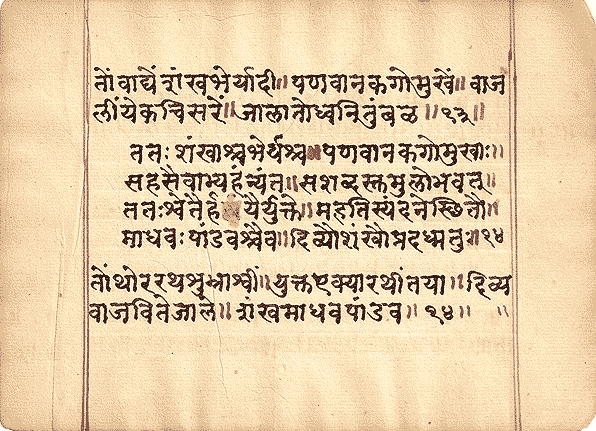 तों वाद्यें शंखभेर्यादी॥ पणवानकगोमुखें॥ वाज
लीं येकचिसरें॥ जाला तो ध्वनि तुंबळ॥ १३॥
ततः शंखाश्चभेर्यश्च॥ पणवानकगोमुखाः॥
सहसैवाभ्यहंन्यंत॥ सशब्दस्तमुलोभवत्॥
ततःश्वेतैर्ह यैर्युक्ते॥ महतिस्यंदनेस्छितौ॥
माधवः पांडवश्चैव॥ दिव्यौशंखौप्रदध्मतु॥ १४
तों थोररथशुभ्राश्वीं॥ युक्तएक्यारथींतया॥ दिव्य
वाजवितेजाले॥ शंखमाधवपांडव॥ १४॥ ॥